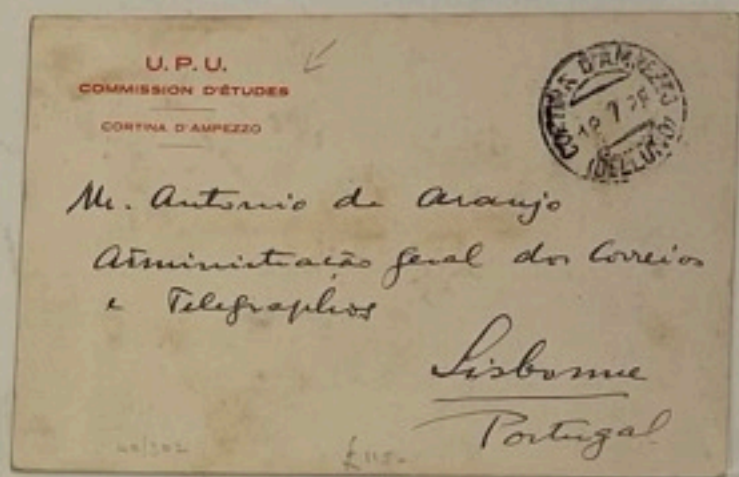 U. P. U.
COMMISSION D'ÉTUDES
CORTINA D'AMPEZZO
CORTINA D'AMPEZZO
(BELLUNO)
Mr. Antonio de Araujo
Administração geral dos Correios
e Telegraphos
Lisbonne
Portugal
40/302